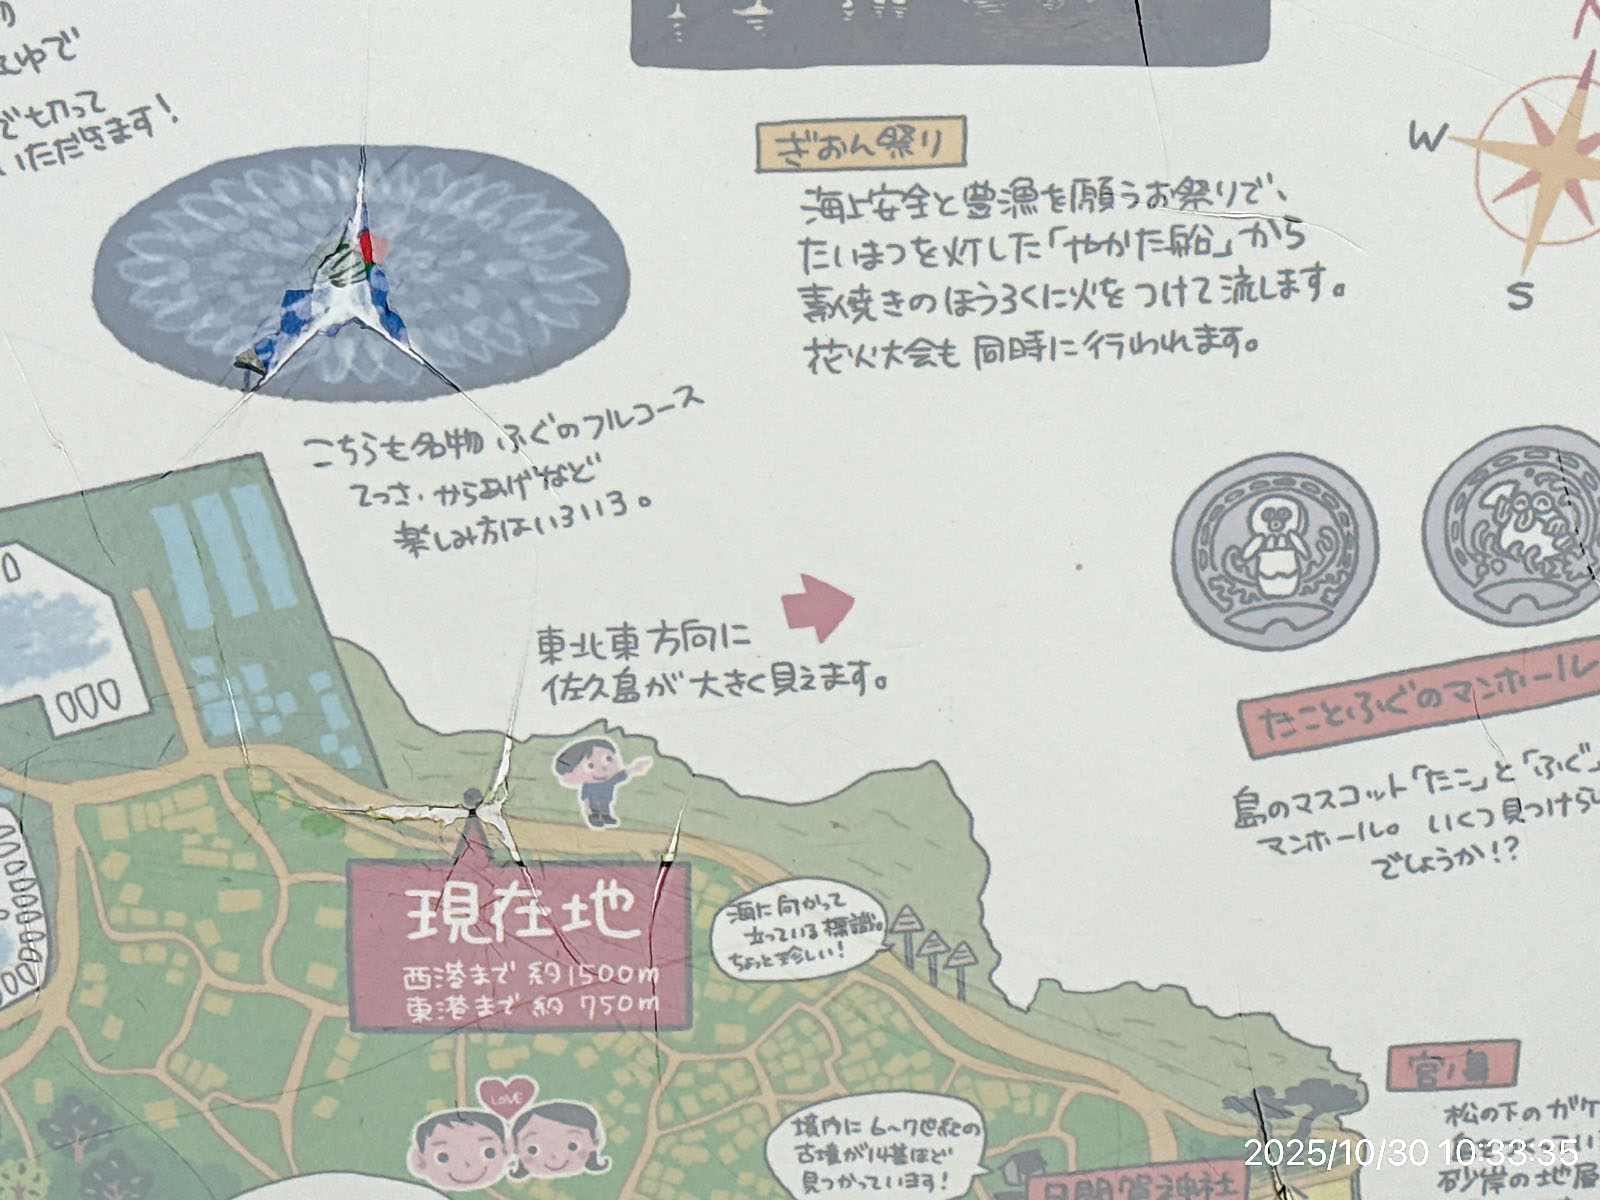 で切って
いただきます!
ぎおん祭り
海上安全と豊漁を願うお祭りで、
たいまつを灯した「やかた船」から
素焼きのほうろくに火をつけて流します。
花火大会も同時に行われます。
N
W
S
こちらも名物 ふぐのフルコース
てっさ、からあげなど
楽しみ方はいろいろ。
東北東方向に
佐久島が大きく見えます。
たことふぐのマンホール
島のマスコット「たこ」と「ふぐ」
マンホール。 いくつ見つけら
でしょうか!?
現在地
西港まで 約1500m
東港まで 約 750m
海に向かって
立っている標識。
ちょっと珍しい!
LOVE
境内に6〜7世紀の
古墳が14基ほど
見つかっています!
日間賀神社
松の下のガケ
砂岸の地層
2025/10/30 10:33:35